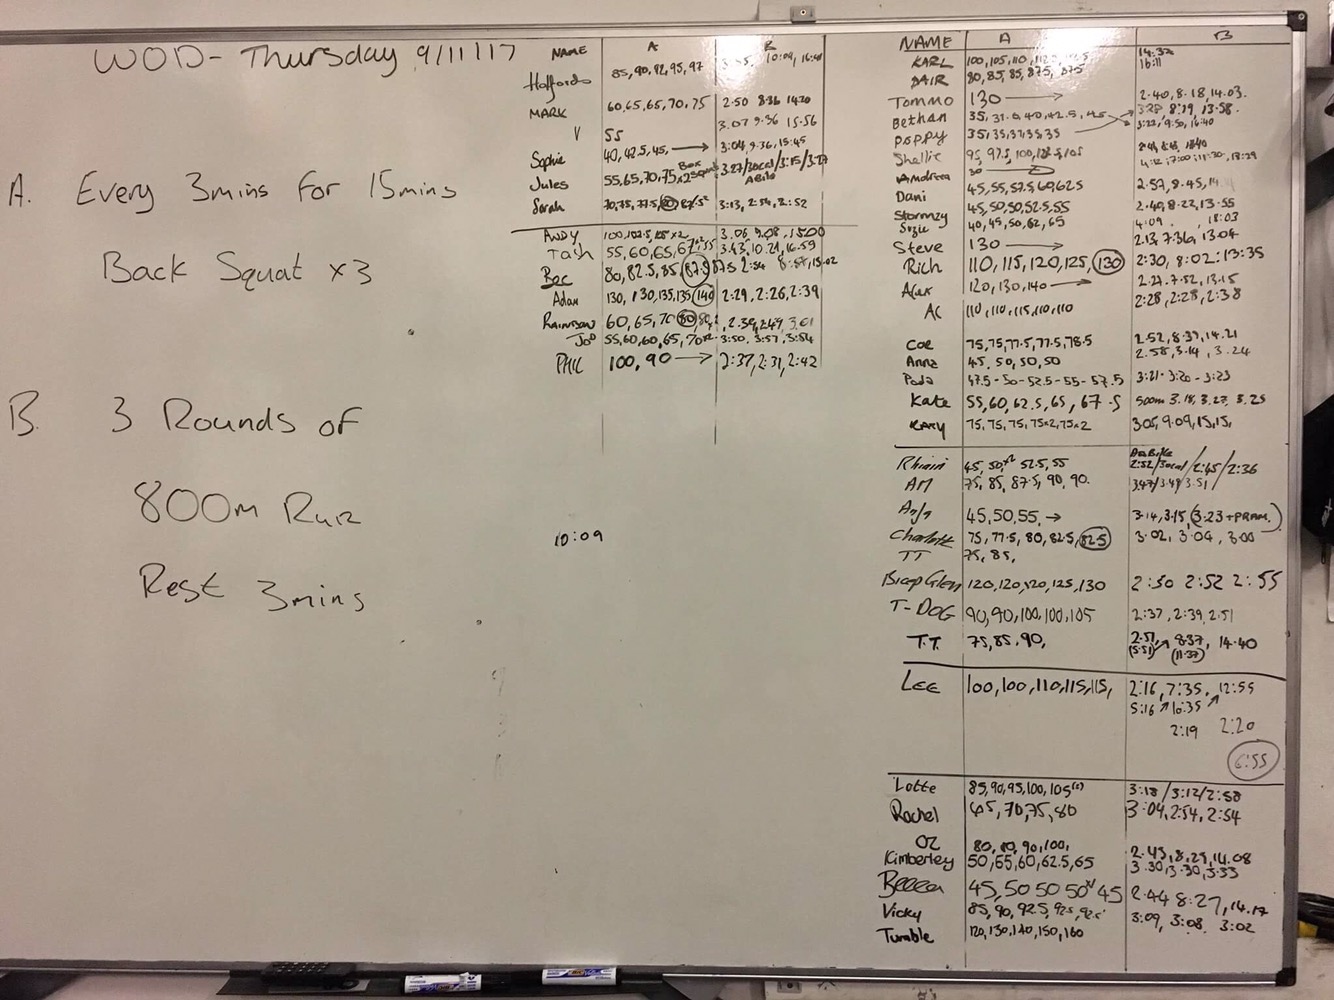 WOD - Thursday 9/11/17
A. Every 3mins for 15mins
Back Squat x3
B. 3 Rounds of
800m Run
Rest 3mins
10:09
NAME A B
85, 90, 92, 95, 97
MARK 60, 65, 65, 70, 75 2.50 8.36 14.20
V 55 3.07 9.36 15.56
Sophie 40, 42.5, 45, → 3:04, 9.36, 15:45
Jules 55, 65, 70, 75x2 Box Squat 3:27/30cal/3:15/3:27
Sarah 3:13, 2:54, 2:52
Andy 100, 102.5, 105x2 3.06 9.08, 15.00
Tash 55, 60, 65, 67 3.43, 10.21, 16.59
Bec 80, 82.5, 85, 87.5
Adam 130, 130, 135, 135, 140 2:29, 2:26, 2:39
Rainbow 60, 65, 70, 80, 2.39, 2.49, 3.01
JoD 55, 60, 60, 65, 70x2 3:50, 3:57, 3:54
PHIL 100, 90 → 2:37, 2:31, 2:42
NAME A B
KARL 100, 105, 110 14:32
BAIR 80, 85, 85, 87.5, 87.5 16:11
Tommo 130 → 2.40, 8.18, 14.03.
Bethan 35, 40, 42.5, 45 8:19, 13:58
Poppy 3:22, 9:50, 16:40
Shellie 95, 97.5, 100
Andrea 30 →
Dani 45, 55, 57.5, 60, 62.5 2.57, 8.45,
Stormzy 45, 50, 50, 52.5, 55 2.40, 8.22, 13.55
Suzie 40, 45, 50, 62, 65 4:09 18:03
Steve 130 → 2.13, 7.36, 13.04
Rich 110, 115, 120, 125, 130 2:30, 8:02, 13:35
Alex 120, 130, 140 → 2.27, 7.52, 13.15
AC 110, 110, 115, 110, 110 2:28, 2:28, 2:38
Coe 75, 75, 77.5, 77.5, 78.5 2.52, 8.37, 14.21
Anna 45, 50, 50, 50 2.58, 3.14, 3.24
47.5 - 50 - 52.5 - 55 - 57.5 3:21 - 3:20 - 3:23
Kate 55, 60, 62.5, 65, 67.5 500m 3.18, 3.27, 3.25
KARY 75, 75, 75, 75x2, 75x2 3.05, 9.09, 15.15,
Rhian 45, 50x2 52.5, 55 2:52/30cal/2:45/2:36
AM 75, 85, 87.5, 90, 90. 3.47/3.48/3.51
45, 50, 55, → 3.14, 3.15, (3:23 + PRAM)
Charlotte 75, 77.5, 80, 82.5, 82.5 3.02, 3.04, 3.00
TT 75, 85,
Bicep Glen 120, 120, 120, 125, 130 2:50 2:52 2:55
T-DOG 90, 90, 100, 100, 105 2:37, 2:39, 2:51
T.T. 75, 85, 90, 2:51, 8:37, 14:40
(5:51) (11:37)
LEE 100, 100, 110, 115, 115, 2:16, 7:35, 12:55
5:16 10:35
2:19 2:20
6:55
Lotte 85, 90, 95, 100, 105(2) 3:18/3:12/2:58
Rachel 65, 70, 75, 80 3:04, 2:54, 2:54
OZ 80, 90, 90, 100, 2:43, 8:25, 14:08
Kimberley 50, 65, 60, 62.5, 65 3.30, 3.30, 3.33
Becca 45, 50 50 50 45 2.44 8:27, 14.17
Vicky 85, 90, 92.5, 92.5, 92.5 3:09, 3:08, 3:02
Tumble 120, 130, 140, 150, 160